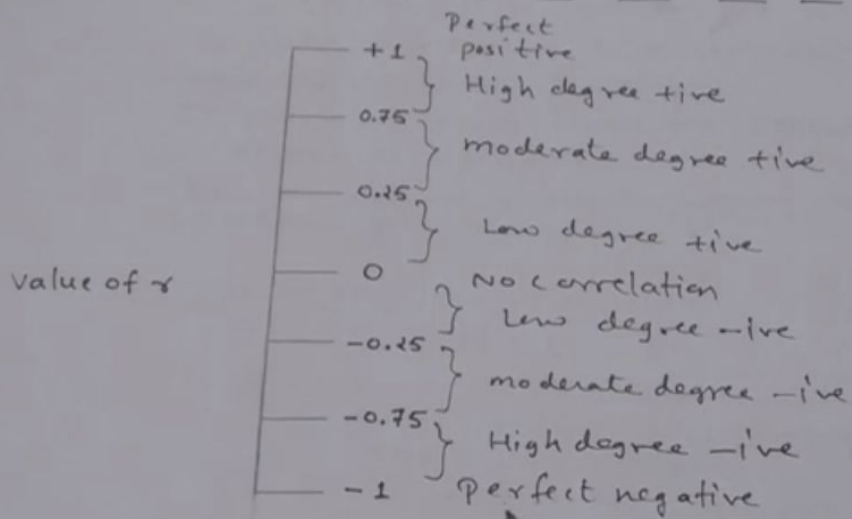 Perfect
+1 positive
High degree +ive
0.75
moderate degree +ive
0.25
Low degree +ive
value of r
0 No correlation
Low degree -ive
-0.25
moderate degree -ive
-0.75
High degree -ive
-1 perfect negative